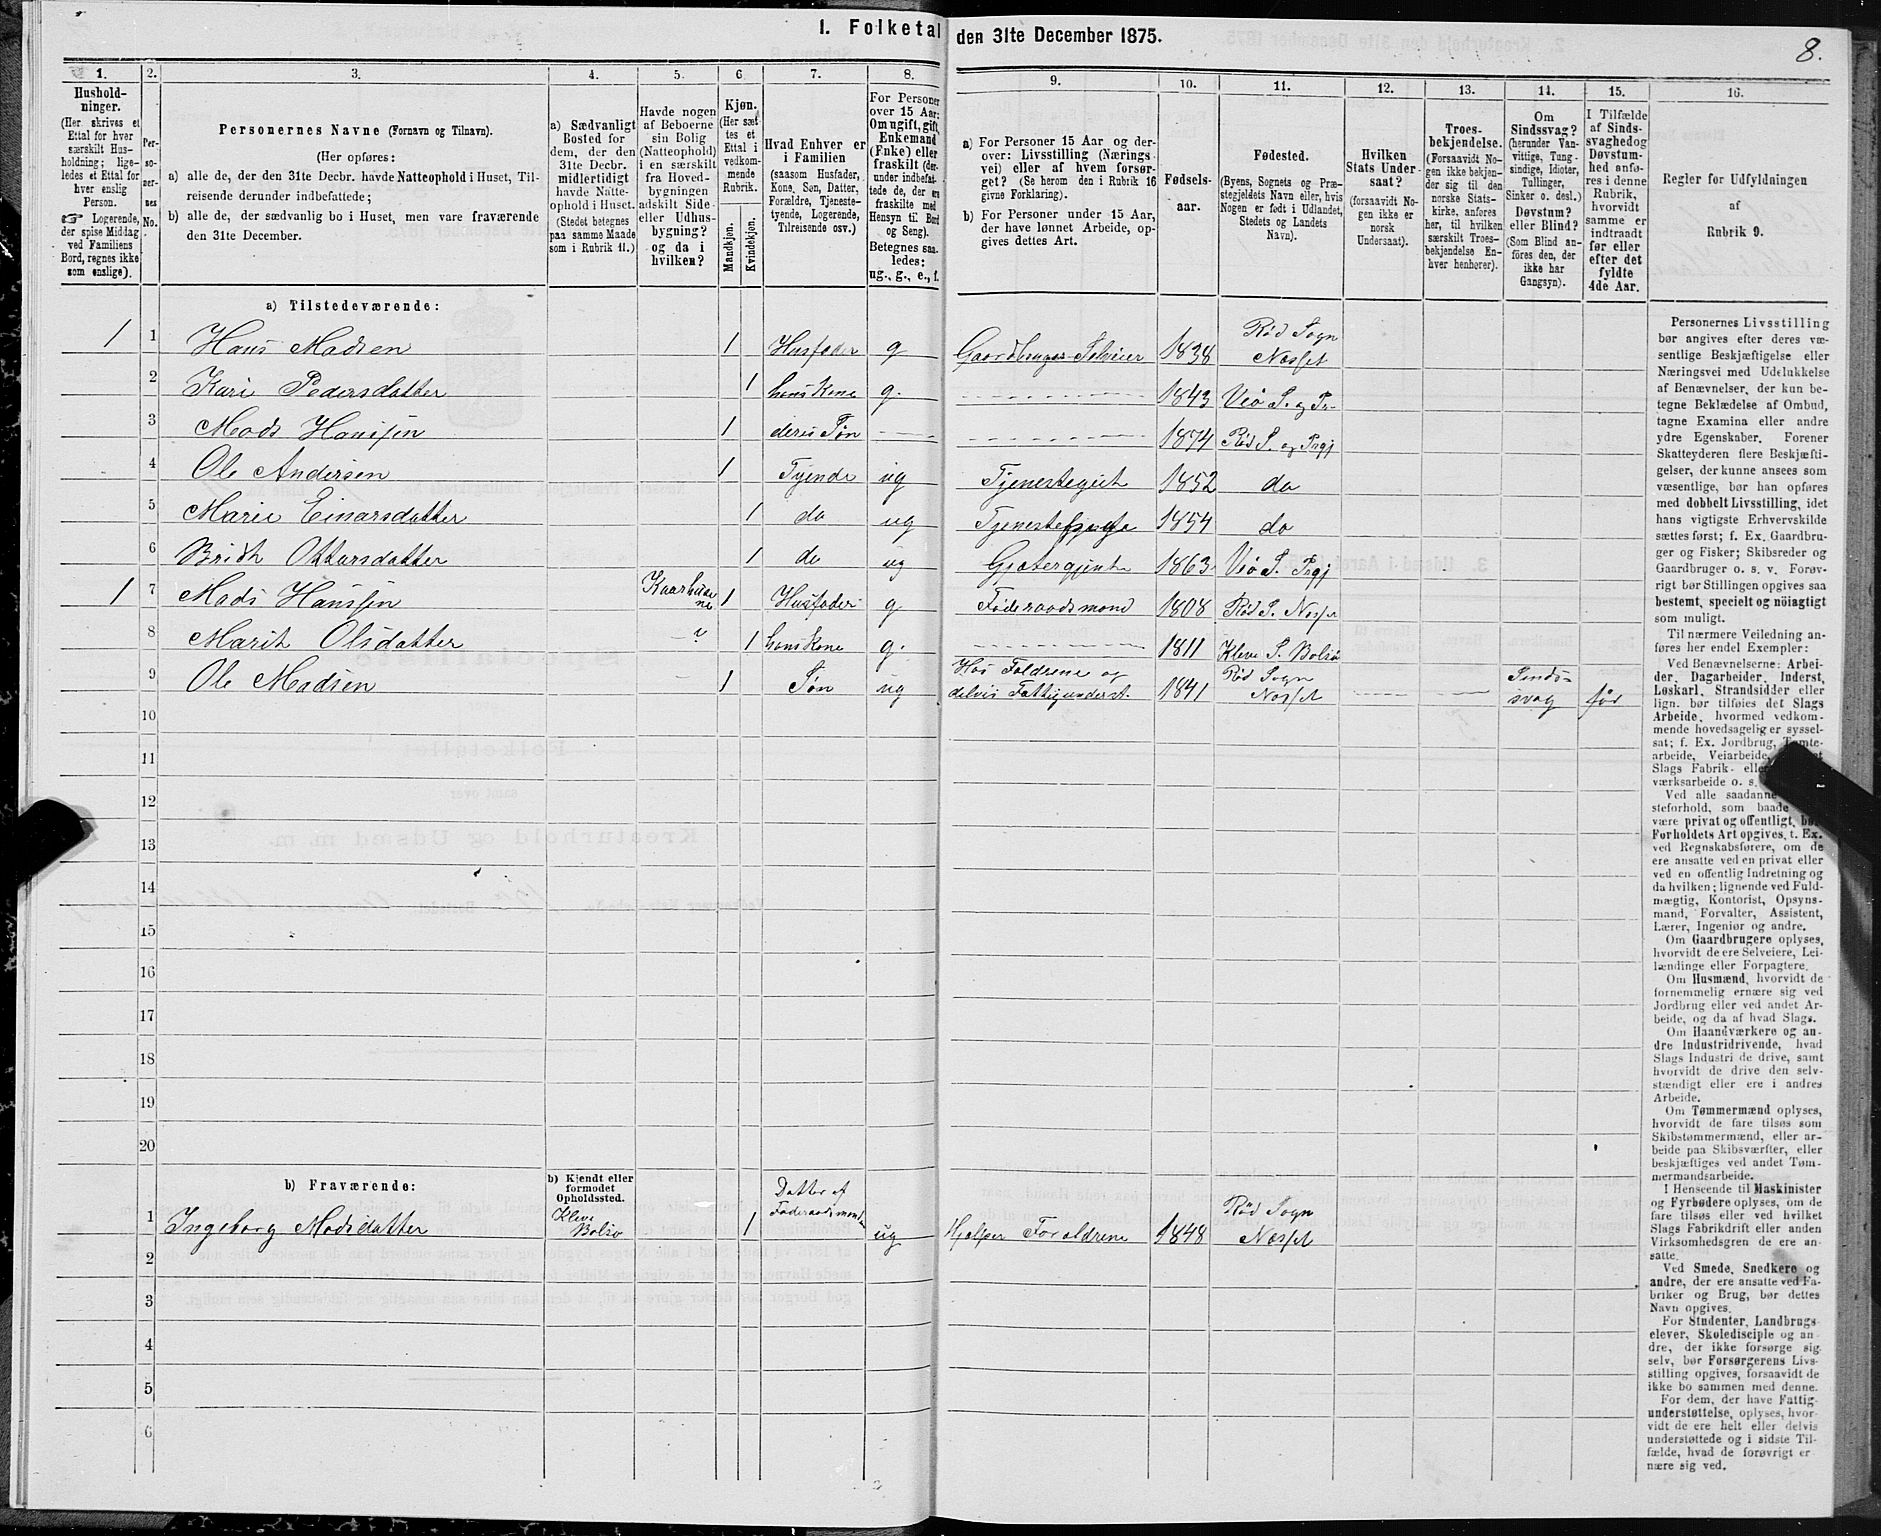 I. Folketal den 31te December 1875.
8.
1. 2. 3. 4. 5. 6. 7. 8. 9. 10. 11. 12. 13. 14. 15. 16.
Hushold-
ninger.
(Her skrives et
Ettal for hver
særskilt Hus-
holdning; lige-
ledes et Ettal for
hver enslig
Person.
☞ Logerende,
der spise Middag
ved Familiens
Bord, regnes ikke
som enslige).
Per-
so-
ner-
nes
No.
Personernes Navne (Fornavn og Tilnavn).
(Her opføres:
a) alle de, der den 31te Decbr. havde Natteophold i Huset, Til-
reisende derunder indbefattede;
b) alle de, der sædvanlig bo i Huset, men vare fraværende
den 31te December.
a) Sædvanligt
Bosted for
dem, der den
31te Decbr.
midlertidigt
havde Natte-
ophold i Huset.
(Stedet betegnes
paa samme Maade
som i Rubrik 11.)
Havde nogen
af Beboerne
sin Bolig
(Natteophold)
i en særskilt
fra Hoved-
bygningen
adskilt Side-
eller Udhus-
bygning?
og da i
hvilken?
Kjøn.
(Her sæt-
tes et
Ettal i
vedkom-
mende
Rubrik.
Mandkjøn.
Kvindekjøn.
Hvad Enhver er
i Familien
(saasom Husfader,
Kone, Søn, Datter,
Forældre, Tjeneste-
tyende, Logerende,
Tilreisende osv.)
For Personer
over 15 Aar:
Om ugift, gift,
Enkemand
(Enke) eller
fraskilt (der-
under indbefat-
tede de, der ere
fraskilte med
Hensyn til Bord
og Seng).
Betegnes saa-
ledes:
ug., g., e., f.
a) For Personer 15 Aar og der-
over: Livsstilling (Nærings-
vei) eller af hvem forsør-
get? (Se herom den i Rubrik 16
givne Forklaring).
b) For Personer under 15 Aar,
der have lønnet Arbeide, op-
gives dettes Art.
Fødsels-
aar.
Fødested.
(Byens, Sognets og Præ-
stegjeldets Navn eller, hvis
Nogen er født i Udlandet,
Stedets og Landets
Navn).
Hvilken
Stats Under-
saat?
(forsaavidt No-
gen ikke er
norsk
Undersaat).
Troes-
bekjendelse.
(Forsaavidt No-
gen ikke bekjen-
der sig til den
norske Stats-
kirke, anføres
her, til hvilken
særskilt Troes-
bekjendelse En-
hver henhører).
Om
Sindssvag?
(herunder Van-
vittige, Tung-
sindige, Idioter,
Tullinger,
Sinker o. desl.)
Døvstum?
eller Blind?
(Som Blind an-
föres den, der
ikke har
Gangsyn).
I Tilfælde
af Sinds-
svaghed og
Døvstum-
hed anfø-
res i denne
Rubrik,
hvorvidt
samme er
indtraadt
før eller
efter det
fyldte
4de Aar.
Regler for Udfyldningen
af
Rubrik 9.
a) Tilstedeværende:
1 1 Hans Madsen 1 Husfader g Gaardbruger Selveier 1838 Rød Sogn Næsset
2 Kari Pedersdatter 1 hans Kone g. 1843 Veø S. og Pr-
3 Mads Hanssen 1 deres Søn 1874 Rød S. og Prgj
4 Ole Andersen 1 Tyende ug Tjenestegut 1852 do
5 Marie Einarsdatter 1 do ug 1854 do
6 Brith Ottarsdatter 1 do ug Gjæterjente 1863 Veø S. Prgj
1 7 Mads Hanssen 1 Husfader g Føderaadsmand 1808 Rød S. Næsset
8 Marit Olsdatter 1 hans Kone g. 1811 Kleve S. Bolsø
9 Ole Madsen 1 Søn ug Hos Foldrene og delvis Fattigunderst. 1841 Rød Sogn Næsset Sinds- svag før
10
11
12
13
14
15
16
17
18
19
20
b) Fraværende:
b) Kjendt eller
formodet
Opholdssted.
1 Ingeborg Madsdatter Kleve Bolsø 1 Datter af Føderaadsmanden ug Hjelper Foreldrene 1848 Rød Sogn Næsset
2
3
4
5
6
Personernes Livsstilling
bør angives efter deres væ-
sentlige Beskjæftigelse eller
Næringsvei med Udelukkelse
af Benævnelser, der kun be-
tegne Beklædelse af Ombud,
tagne Examina eller andre
ydre Egenskaber. Forener
Skatteyderen flere Beskjæfti-
gelser, der kunne ansees som
væsentlige, bør han opføres
med dobbelt Livsstilling, idet
hans vigtigste Erhvervskilde
sættes først; f. Ex. Gaardbru-
ger og Fisker; Skibsreder og
Gaardbruger o. s. v. Forøv-
rigt bør Stillingen opgives saa
bestemt, specielt og nöiagtigt
som muligt.
Til nærmere Veiledning an-
føres her endel Exempler:
Ved Benævnelserne: Arbei-
der, Dagarbeider, Inderst,
Løskarl, Strandsidder eller
lign. bør tilføies det Slags
Arbeide, hvormed vedkom-
mende hovedsagelig er syssel-
sat; f. Ex. Jordbrug, Tomte-
arbeide, Veiarbeide,
Slags Fabrik- eller
værksarbeide o. s.
Ved alle saadanne
steforhold, som baade
være privat og offentligt, bør
Forholdets Art opgives, t. Ex.
ved Regnskabsførere, om de
ere ansatte ved en privat eller
ved en offentlig Indretning og
da hvilken; lignende ved Fuld-
mægtig, Kontorist, Opsyns-
mand, Forvalter, Assistent,
Lærer, Ingeniør og andre.
Om Gaardbrugere oplyses,
hvorvidt de ere Selveiere, Lei-
lændinge eller Forpagtere.
Om Husmænd, hvorvidt de
fornemmelig ernære sig ved
Jordbrug eller ved andet Ar-
beide, og da af hvad Slags.
Om Haandværkere og an-
dre Industridrivende, hvad
Slags Industri de drive, samt
hvorvidt de drive den selv-
stændigt eller ere i andres
Arbeide.
Om Tømmermænd oplyses,
hvorvidt de fare tilsøs som
Skibstømmermænd, eller ar-
beide paa Skibsværfter, eller
beskjæftiges ved andet Tøm-
mermandsarbeide.
I Henseende til Maskinister
og Fyrbødere oplyses, om de
fare tilsøs eller ved hvilket
Slags Fabrikdrift eller anden
Virksomhedsgren de ere an-
satte.
Ved Smede, Snedkere og
andre, der ere ansatte ved Fa-
briker og Brug, bør dettes
Navn opgives.
For Studenter, Landbrugs-
elever, Skoledisciple og an-
dre, der ikke forsørge sig
selv, bør Forsørgerens Livs-
stilling opgives, forsaavidt de
ikke bo sammen med denne.
For dem, der have Fattig-
understøttelse, oplyses, hvor-
vidt de ere helt eller delvis
understøttede og i sidste Til-
fælde, hvad de forøvrigt er-
nære sig ved.